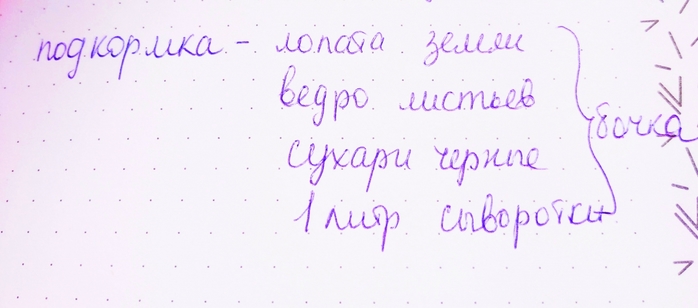 подкормка - лопата земли
ведро листьев
сухари черные
1 литр сыворотки
бочка